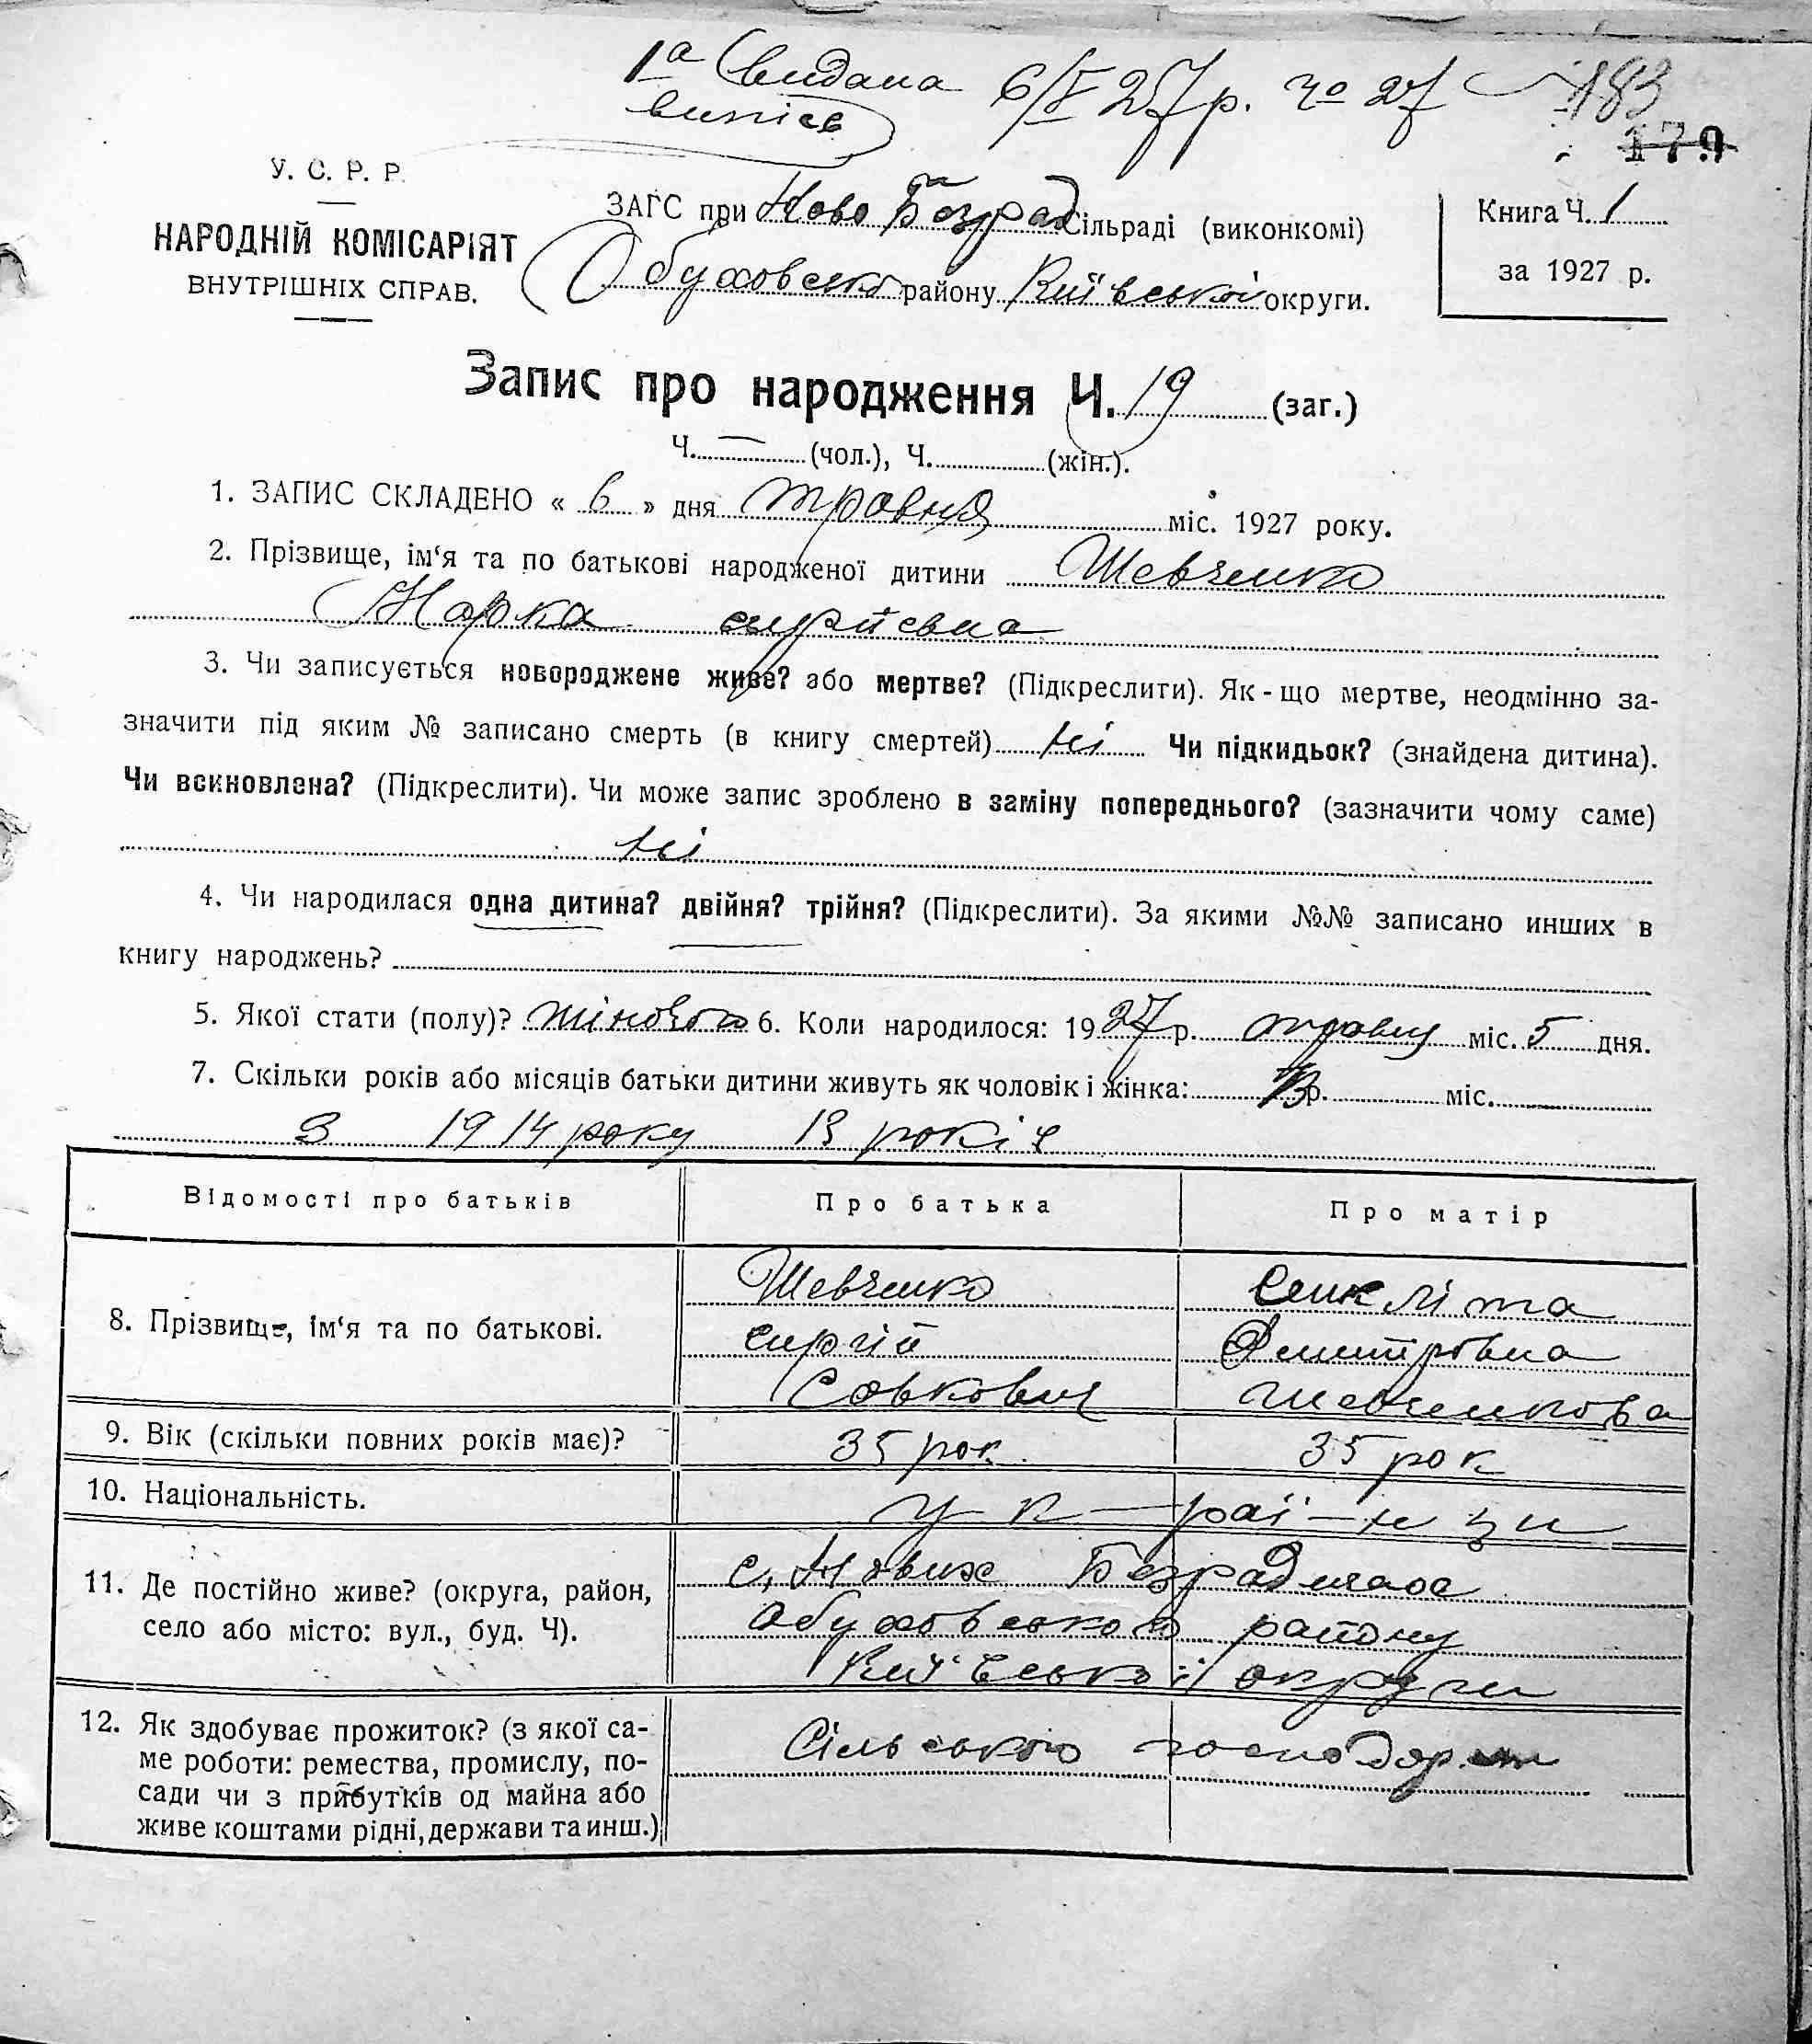 1а видана 6/V 27р. Чо 27 183
випісь
179
У. С. Р. Р.
НАРОДНІЙ КОМІСАРІЯТ
ВНУТРІШНІХ СПРАВ.
ЗАГС при Ново Безрад Сільраді (виконкомі)
Обуховсько району Київської округи.
Книга Ч. 1
за 1927 р.
Запис про народження Ч. 19 (заг.)
Ч. — (чол.), Ч. (жін.).
1. ЗАПИС СКЛАДЕНО « 6 » дня травня міс. 1927 року.
2. Прізвище, ім‘я та по батькові народженої дитини Шевченко
3. Чи записується новороджене живе? або мертве? (Підкреслити). Як - що мертве, неодмінно за-
значити під яким № записано смерть (в книгу смертей) ні Чи підкидьок? (знайдена дитина).
Чи всиновлена? (Підкреслити). Чи може запис зроблено в заміну попереднього? (зазначити чому саме)
ні
4. Чи народилася одна дитина? двійня? трійня? (Підкреслити). За якими №№ записано инших в
книгу народжень?
5. Якої стати (полу)? жіночої 6. Коли народилося: 1927 р. травня міс. 5 дня.
7. Скільки років або місяців батьки дитини живуть як чоловік і жінка: 13 р. міс.
З 1914 року 13 років
Відомості про батьків Про батька Про матір
8. Прізвище, ім‘я та по батькові.
Шевченко
Сиргій
Савкович
Синкліта
Дмитровна
Шевченкова
9. Вік (скільки повних років має)? 35 рок. 35 рок
10. Національність. у к — раї — н ц и
11. Де постійно живе? (округа, район,
село або місто: вул., буд. Ч).
с. Нових Безрадичах
Обуховського району
Київської округи
12. Як здобуває прожиток? (з якої са-
ме роботи: ремества, промислу, по-
сади чи з прибутків од майна або
живе коштами рідні, держави та инш.)
Сільською господар.